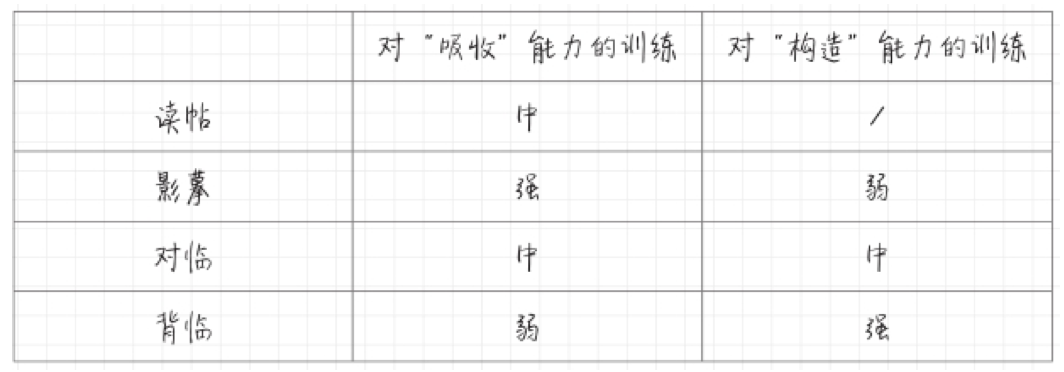 对“吸收”能力的训练 对“构造”能力的训练
读帖 中 /
影摹 强 弱
对临 中 中
背临 弱 强